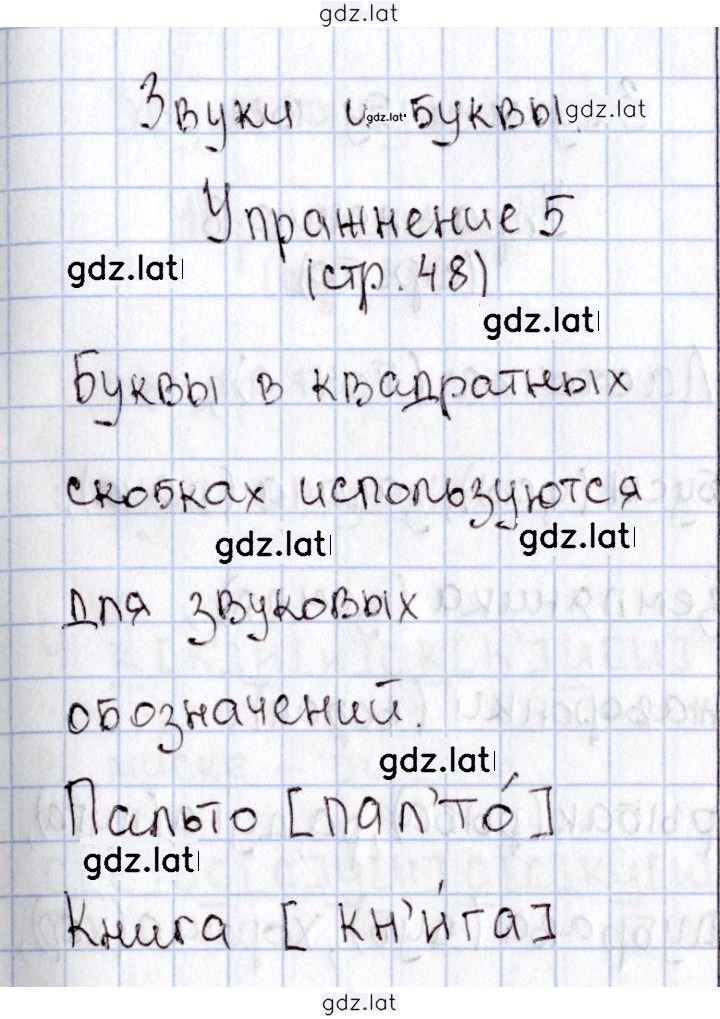 gdz.lat
Звуки и gdz.lat буквы. gdz.lat
Упражнение 5
gdz.lat (стр. 48)
gdz.lat
Буквы в квадратных
скобках используются
gdz.lat gdz.lat
для звуковых
обозначений.
gdz.lat
Пальто [пал'то́]
gdz.lat
Книга [кн'и́га]
gdz.lat